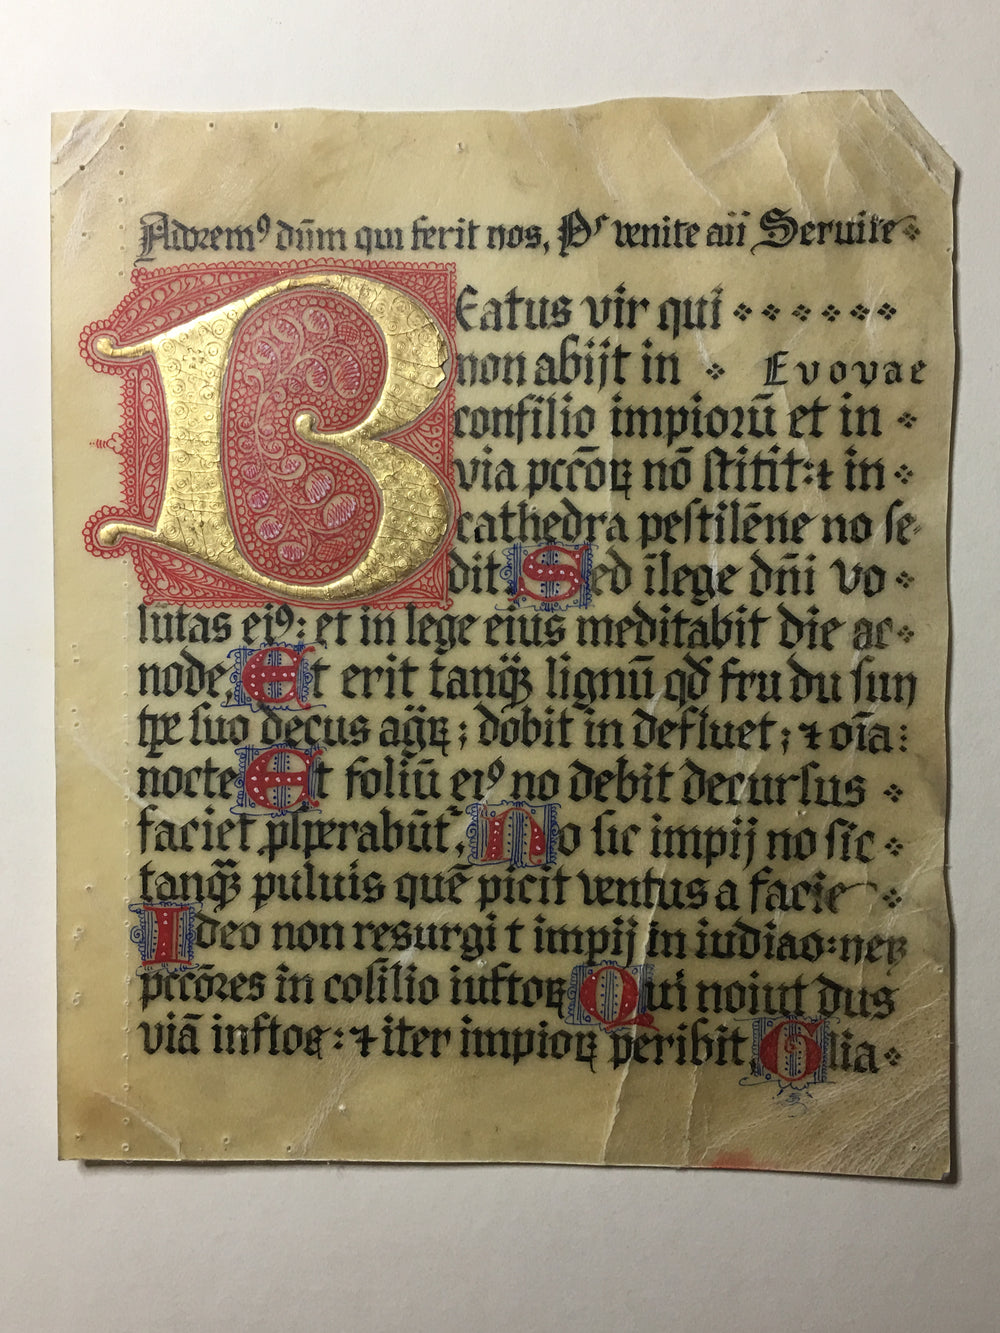 Adorem⁹ dūm qui ferit nos, Ps venite aii Seruite
Beatus vir qui
non abijt in Evovae
consilio impiorū et in
via pccōꝝ nō stitit: ⁊ in
cathedra pestilēne no se
dit Sed īlege dn̄i vo
lūtas ei⁹: et in lege eius meditabit die ac
node, Et erit tanqȝ lignū qd fru du sun
tpe suo decus aqꝝ; dobit in defluet; ⁊ oīa:
nocte Et foliū ei⁹ no debit decursus
faciet psperabūt, No sic impij no sic
tanqȝ puluis quē picit ventus a facie
Ideo non resurgi t impij in iudiao: neqȝ
pccōres in cosilio iustoꝝ Qui noiut dus
viā inftoꝝ: ⁊ iter impioꝝ peribit Glia